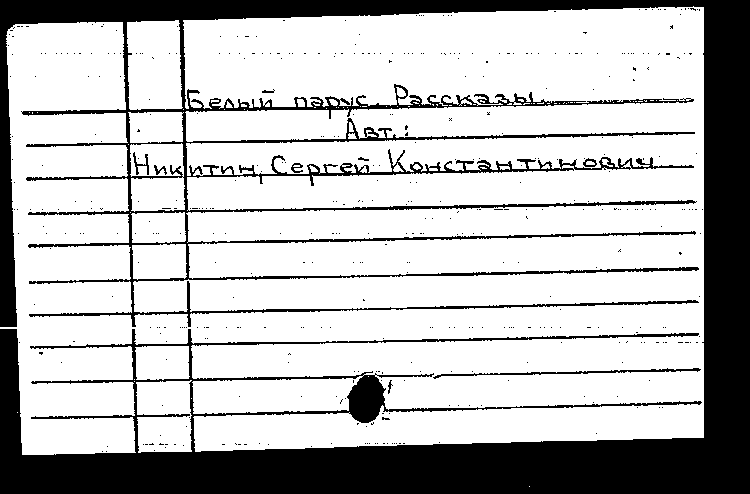 Белый парус. Рассказы.
Авт.:
Никитин, Сергей Константинович